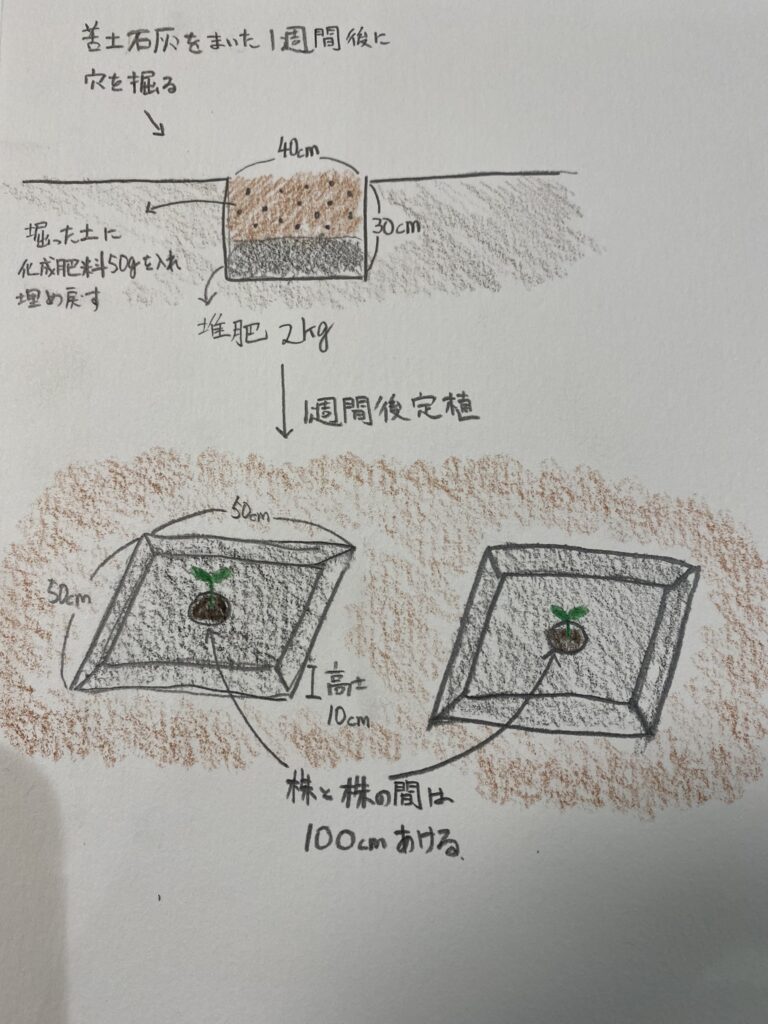 苦土石灰をまいた1週間後に
穴を掘る
40cm
30cm
掘った土に
化成肥料50gを入れ
埋め戻す
堆肥 2kg
1週間後定植
50cm
50cm
高さ
10cm
株と株の間は
100cmあける